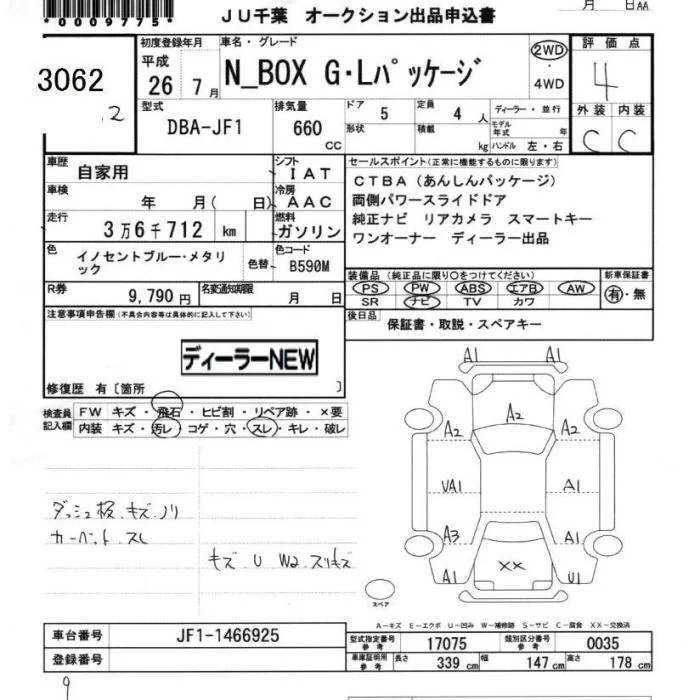 *0009775*
JU千葉 オークション出品申込書
月 日AA
3062
2
初度登録年月
平成
26年 7月
車名・グレード
N_BOX G・Lパッケージ
2WD
・
4WD
評価点
4
外装 内装
C C
型式
DBA-JF1
排気量
660
CC
ドア
5
形状
定員
4 人
積載
kg
ディーラー・並行
モデル年式 年
ハンドル 左・右
車歴
自家用
シフト
IAT
車検
年 月( 日)
冷房
AAC
走行
3万6千712 km
燃料
ガソリン
色
イノセントブルー・メタリック
色替
色コード
B590M
R券
9,790円
名変通知期限
月 日
セールスポイント(正常に機能するものに限ります)
CTBA(あんしんパッケージ)
両側パワースライドドア
純正ナビ リアカメラ スマートキー
ワンオーナー ディーラー出品
装備品(純正品に限り○をつけてください)
PS PW ABS エアB AW
SR ナビ TV カワ
新車保証書
有・無
後日品
保証書・取説・スペアキー
注意事項申告欄(不具合内容等は具体的に記入して下さい)
ディーラーNEW
修復歴 有〔箇所 〕
検査員
記入欄
FW キズ・飛石・ヒビ割・リペア跡・×要
内装 キズ・汚レ・コゲ・穴・スレ・キレ・破レ
ダッシュ板 キズ ノリ
カーペット スレ
キズ U W2 スリキズ
A1 A1
A2
A2 A2
VA1 A1
A3 A1
XX
A1 U1
スペア
A-キズ E-エクボ U-凹み W-補修跡 S-サビ C-腐食 XX-交換済
車台番号
JF1-1466925
登録番号
型式指定番号
参考
17075
類別区分番号
参考
0035
車庫証明用
参考
長さ 339 cm 幅 147 cm 高さ 178 cm
9